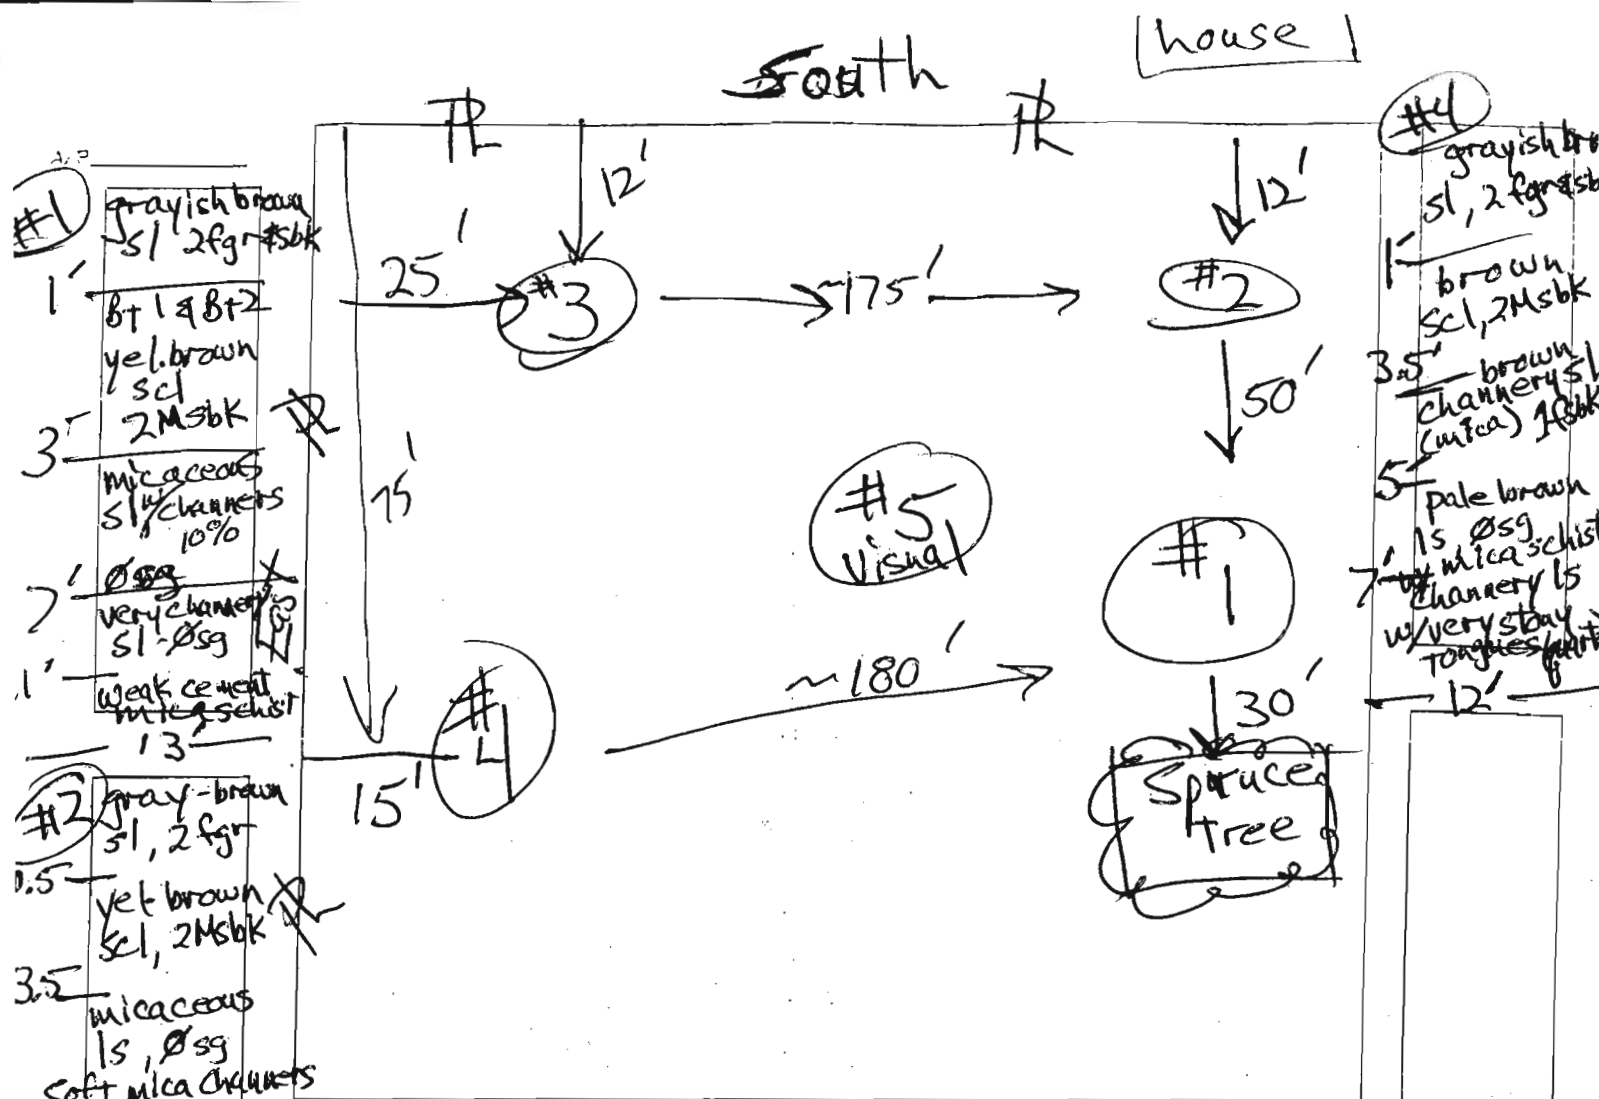 house
South
PL
PL
12'
12'
25'
#3
~175'
#2
50'
75'
#5
visual
#1
~180'
30'
#4
15'
Spruce
tree
#1
grayish brown
sl 2fgr&sbk
1'
Bt1 & Bt2
yel.brown
scl
2Msbk
PL
3'
micaceous
sl w/channers
10%
Øsg
7'
very channery
sl - Øsg
weak cement
micaschist
13'
#2
gray-brown
sl, 2fgr
yel brown
scl, 2Msbk
PL
3.5'
micaceous
ls, Øsg
soft mica channers
#4
grayish bro
sl, 2fgr&sb
1'
brown
scl, 2Msbk
3.5'
brown
channery sl
(mica) 1fsbk
5'
pale brown
ls Øsg
7'
w/ mica schist
channery ls
w/very
tongues
12'